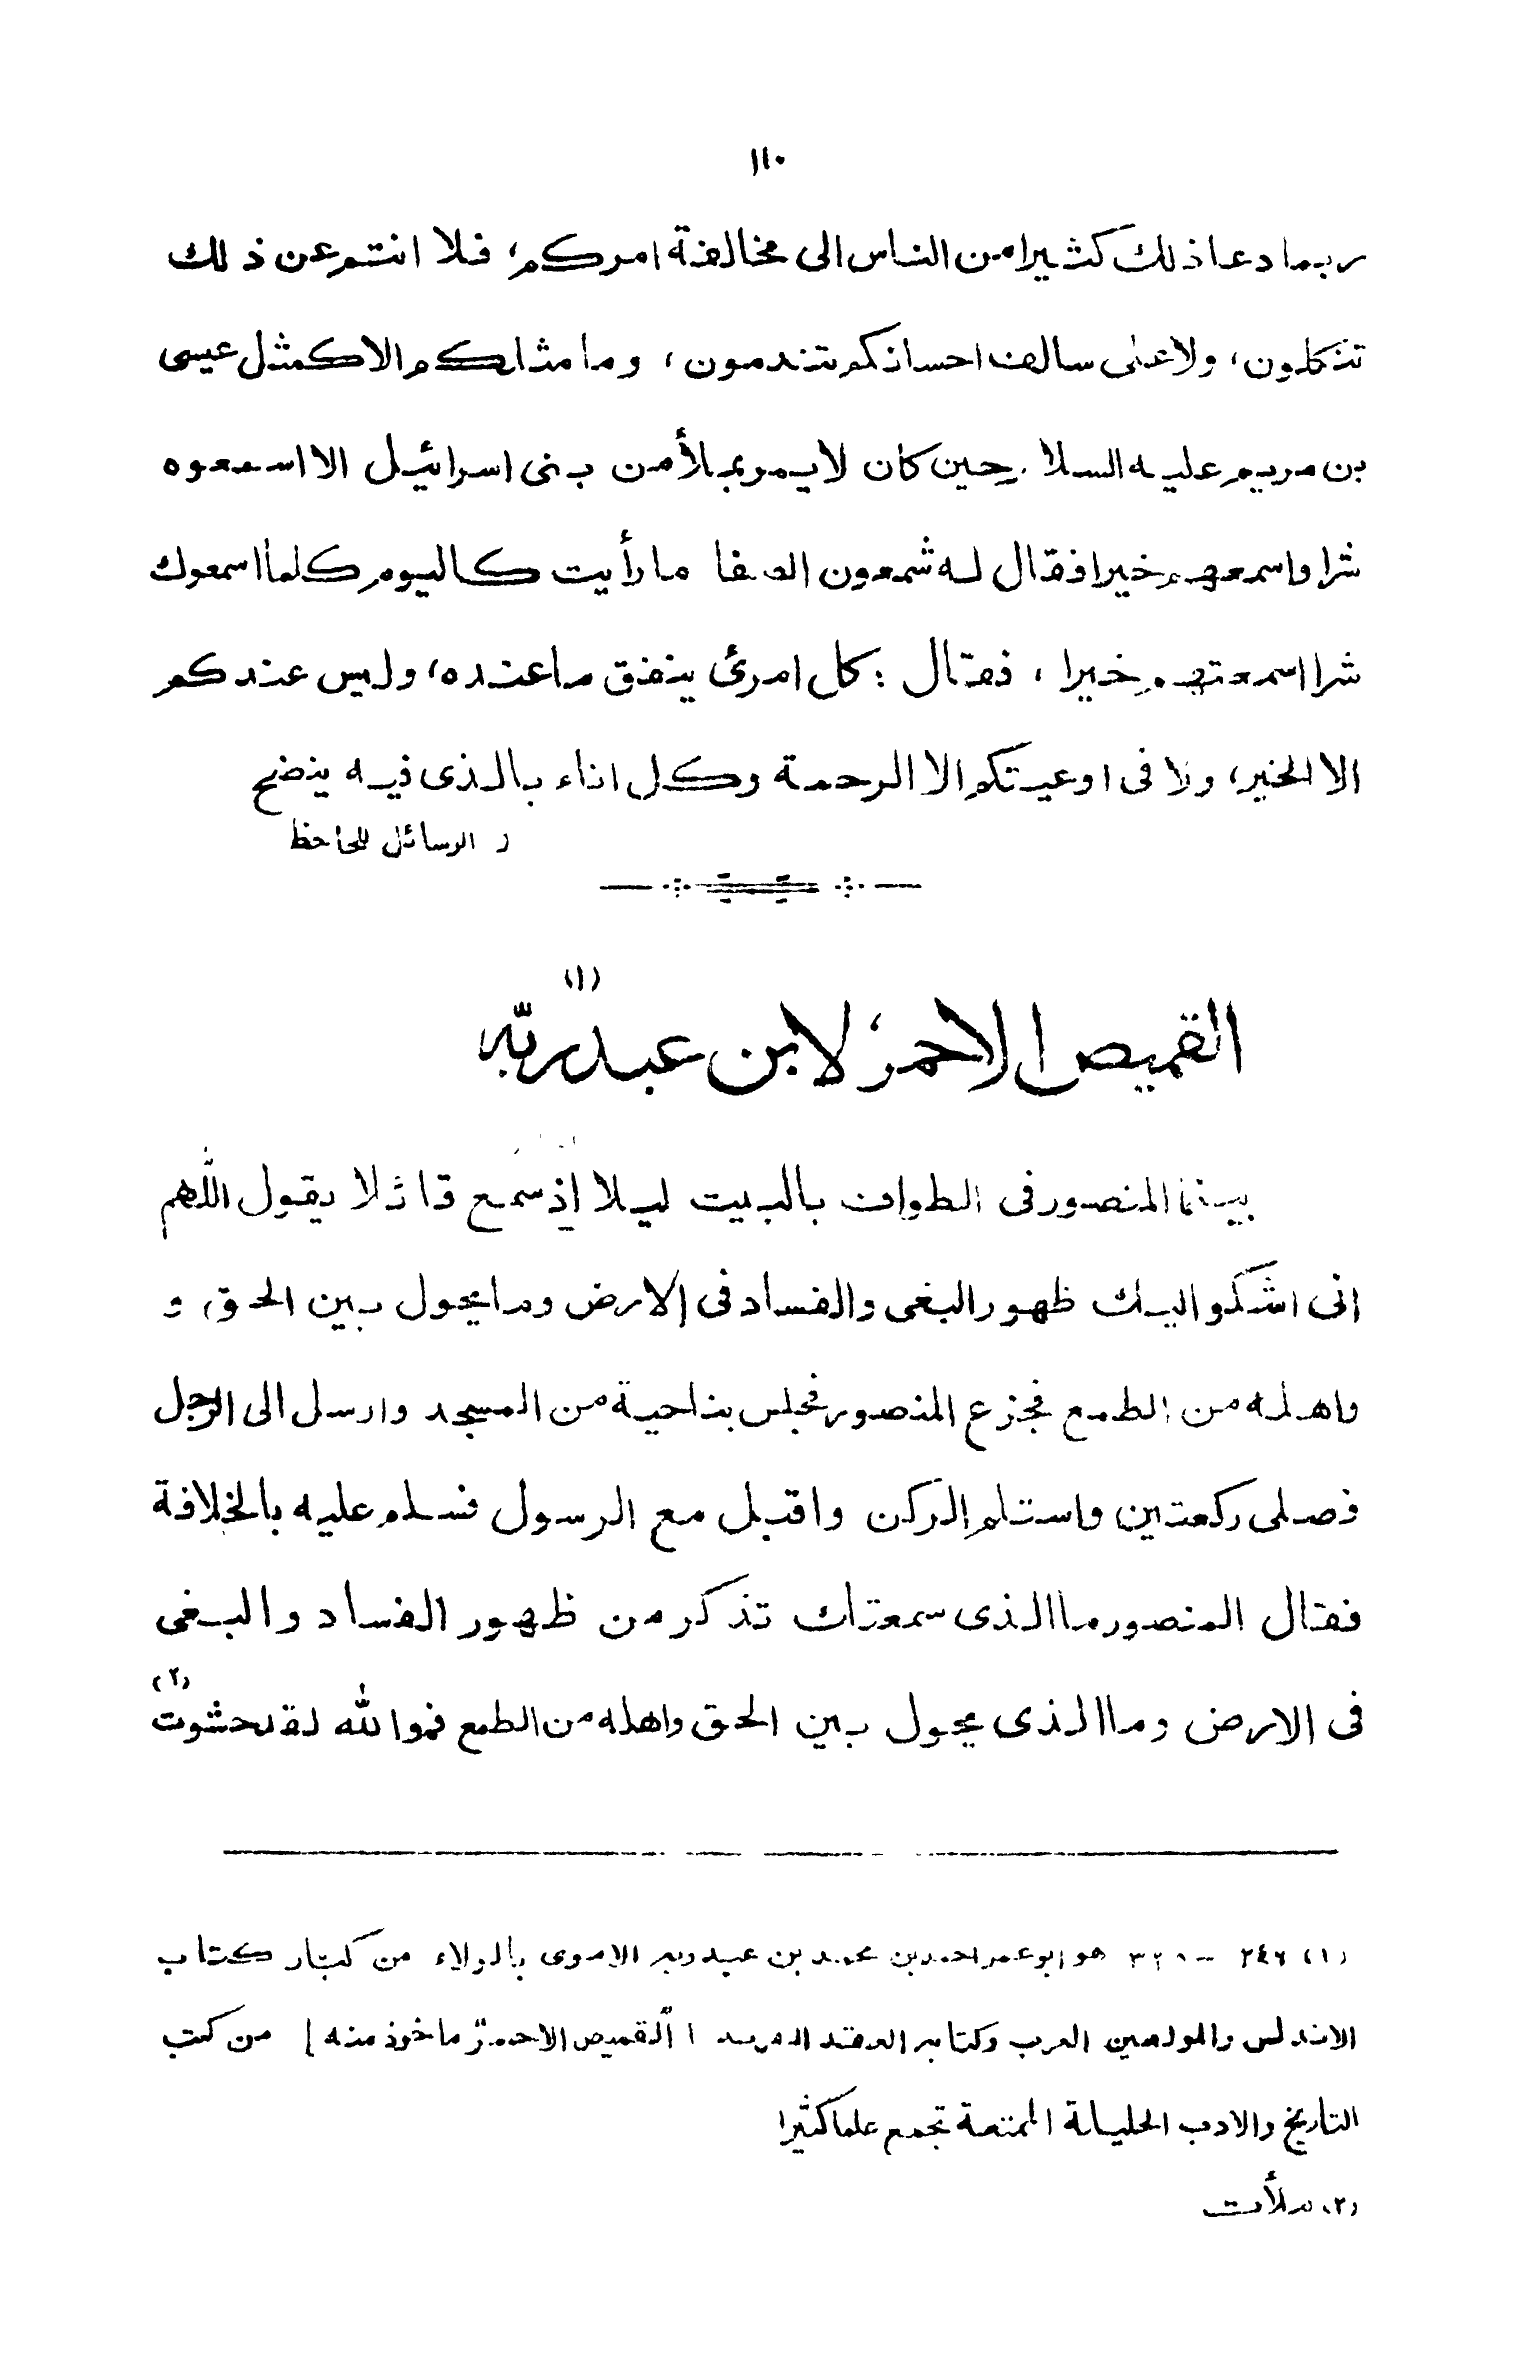 ١١٠
ربما دعا ذلك كثيرا من الناس الى مخالفة امركم، فلا انتم عن ذلك
تنكلون، ولا على سالف احسانكم تندمون، وما مثلكم الا كمثل عيسى
بن مريم عليه السلا. حين كان لا يمر بملأ من بنى اسرائيل الا اسمعوه
شرا واسمعهم خيرا فقال له شمعون الصفا ما رأيت كاليوم كلما اسمعوك
شرا اسمعتهم خيرا، فقال: كل امرئ ينفق ما عنده، وليس عندكم
الا الخير، ولا فى اوعيتكم الا الرحمة وكل اناء بالذى فيه ينضح
ر الرسائل للجاحظ
القميص الاحمر، لابن عبد ربّه (١)
بينما المنصور فى الطواف بالبيت ليلا إذ سمع قائلا يقول اللّهم
انى اشكو اليك ظهور البغى والفساد فى الارض وما يحول بين الحق، و
واهله من الطمع فجزع المنصور فجلس بناحية من المسجد وارسل الى الرجل
فصلى ركعتين واستلم الركن واقبل مع الرسول فسلم عليه بالخلافة
فقال المنصور ما الذى سمعتك تذكر من ظهور الفساد والبغى
فى الارض وما الذى يحول بين الحق واهله من الطمع فوالله لقد حشوت (٢)
(١) ٢٤٦ – هو ابو عمر احمد بن محمد بن عبد ربه الاموى بالولاء من كبار كتاب
الاندلس والمولعين العرب وكتابه العقد الفريد [القميص الاحمر ماخوذ منه] من كتب
التاريخ والادب الجليلة الممتعة تجمع علما كثيرا
(٢) ملأت